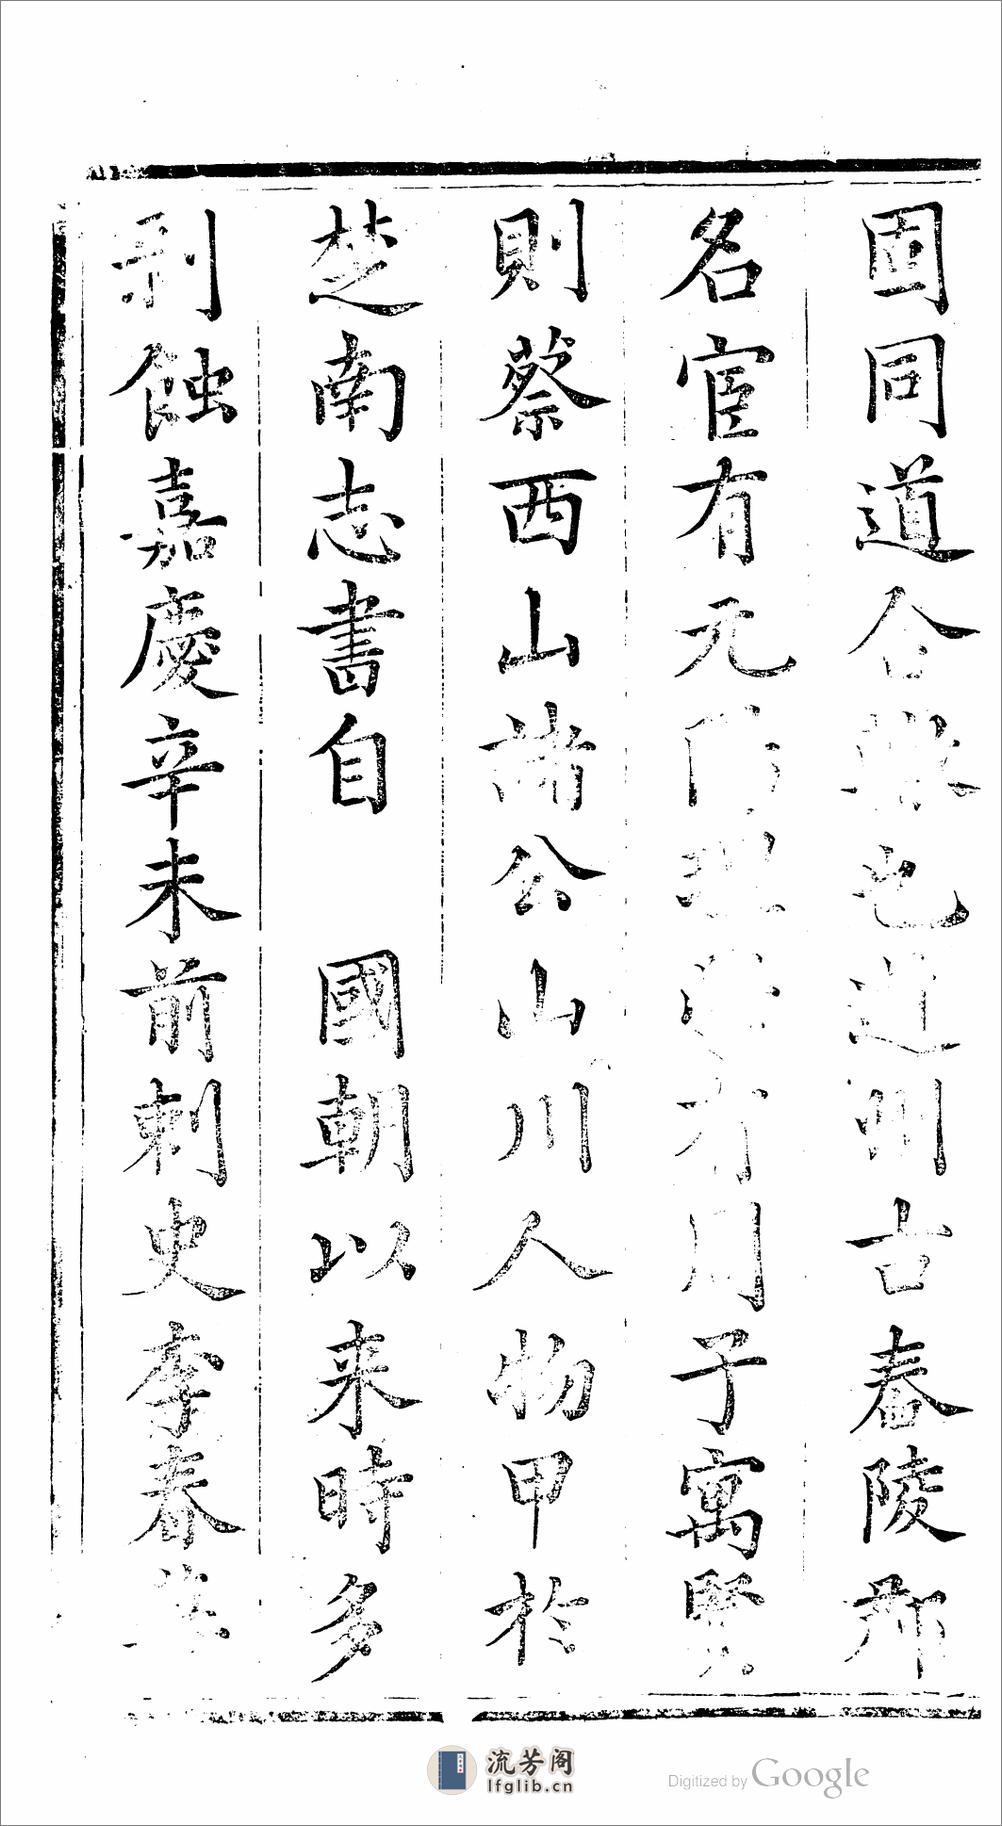 固同道合㦲也道州古舂陵郡
名宦有元陽理學有周子寓賢
則蔡西山諸公山川人物甲於
楚南志書自　國朝以来時多
剥蝕嘉慶辛未前刺史李春
流芳阁
lfglib.cn
Digitized by Google